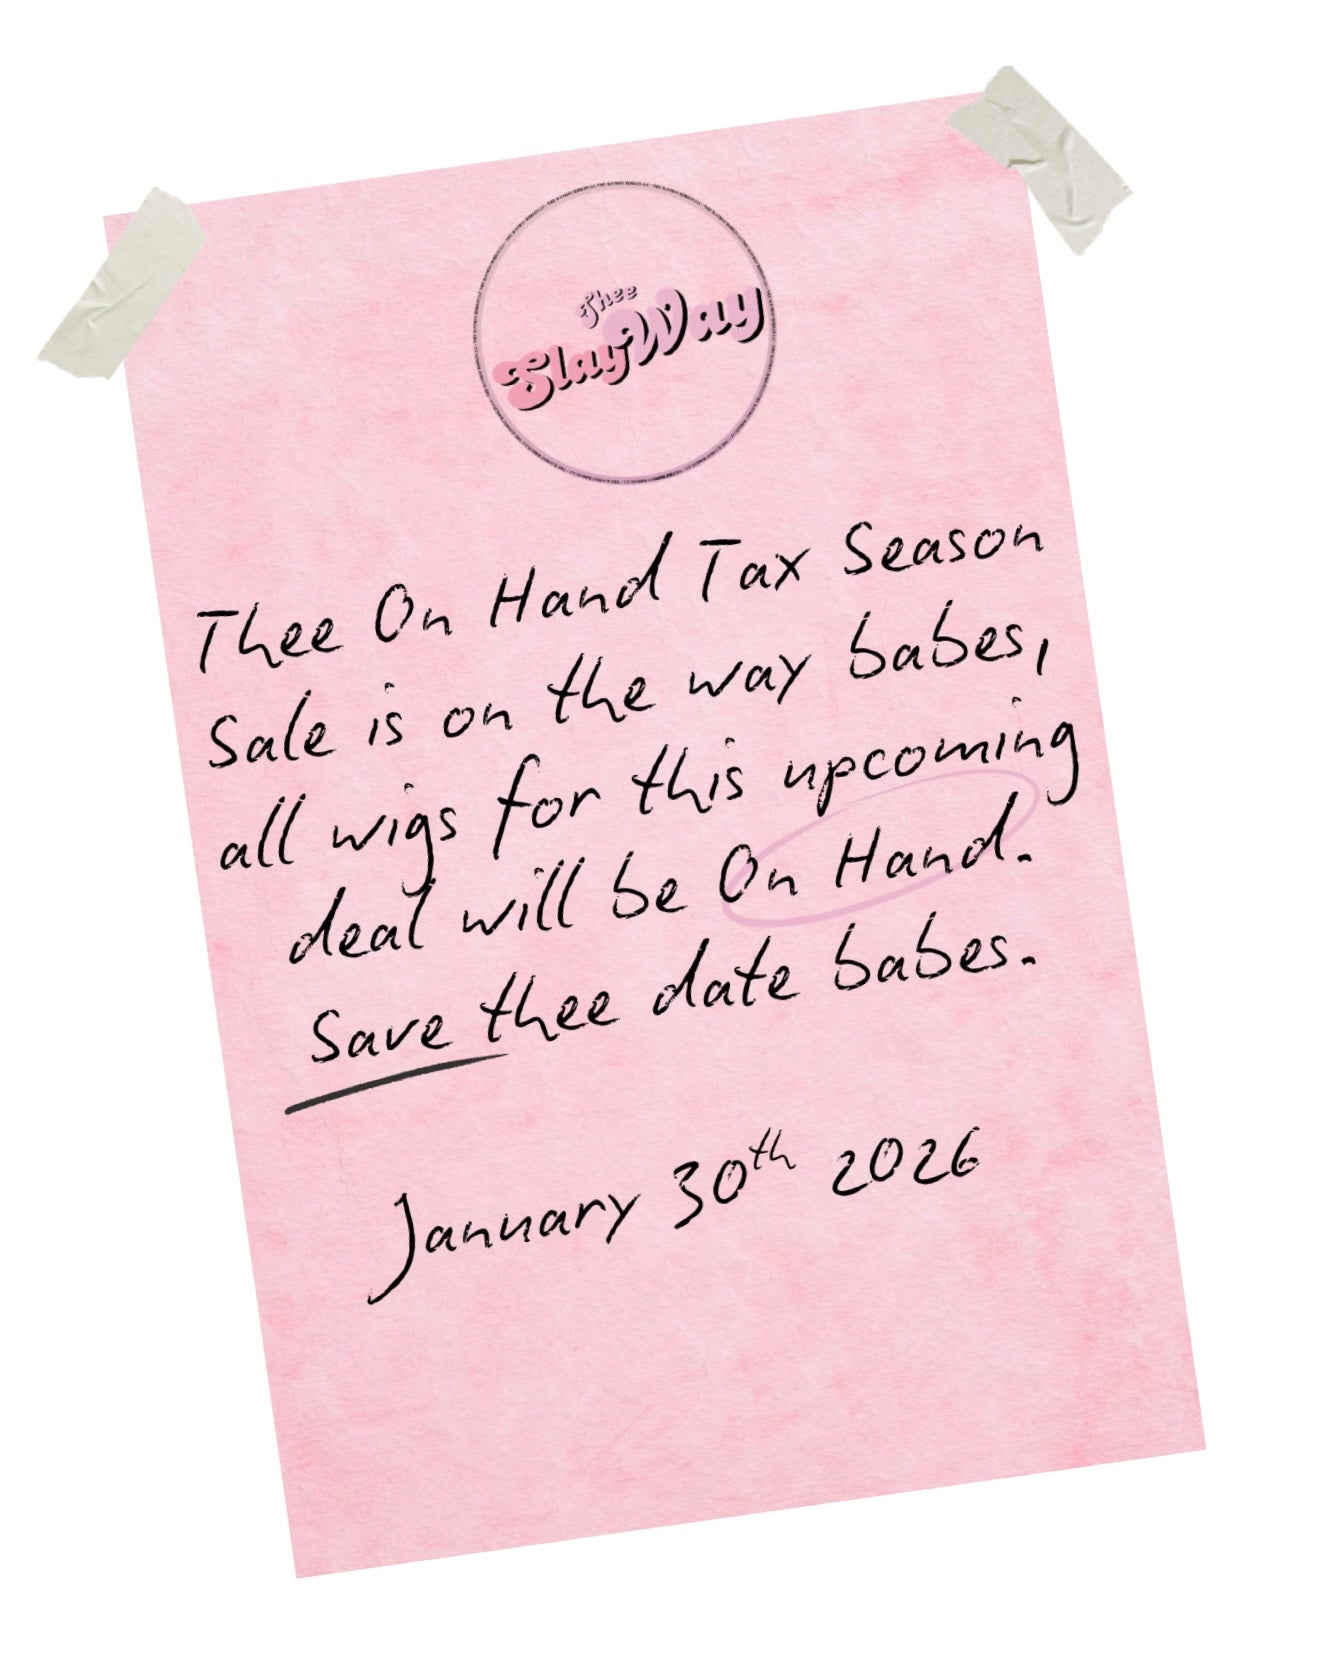 Thee
SlayWay
Thee On Hand Tax Season
Sale is on the way babes,
all wigs for this upcoming
deal will be On Hand.
Save thee date babes.
January 30th 2026